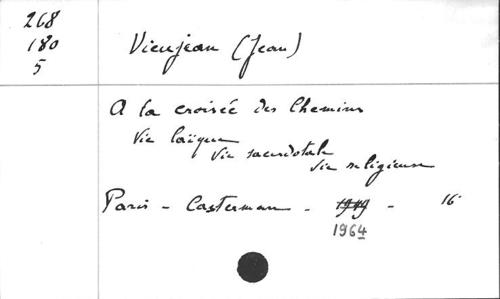 268
180
5
Vieujean (Jean)
A la croisée des Chemins
Vie laïque
Vie sacerdotale
Vie religieuse
Paris - Casterman - 1949 - 16°
1964